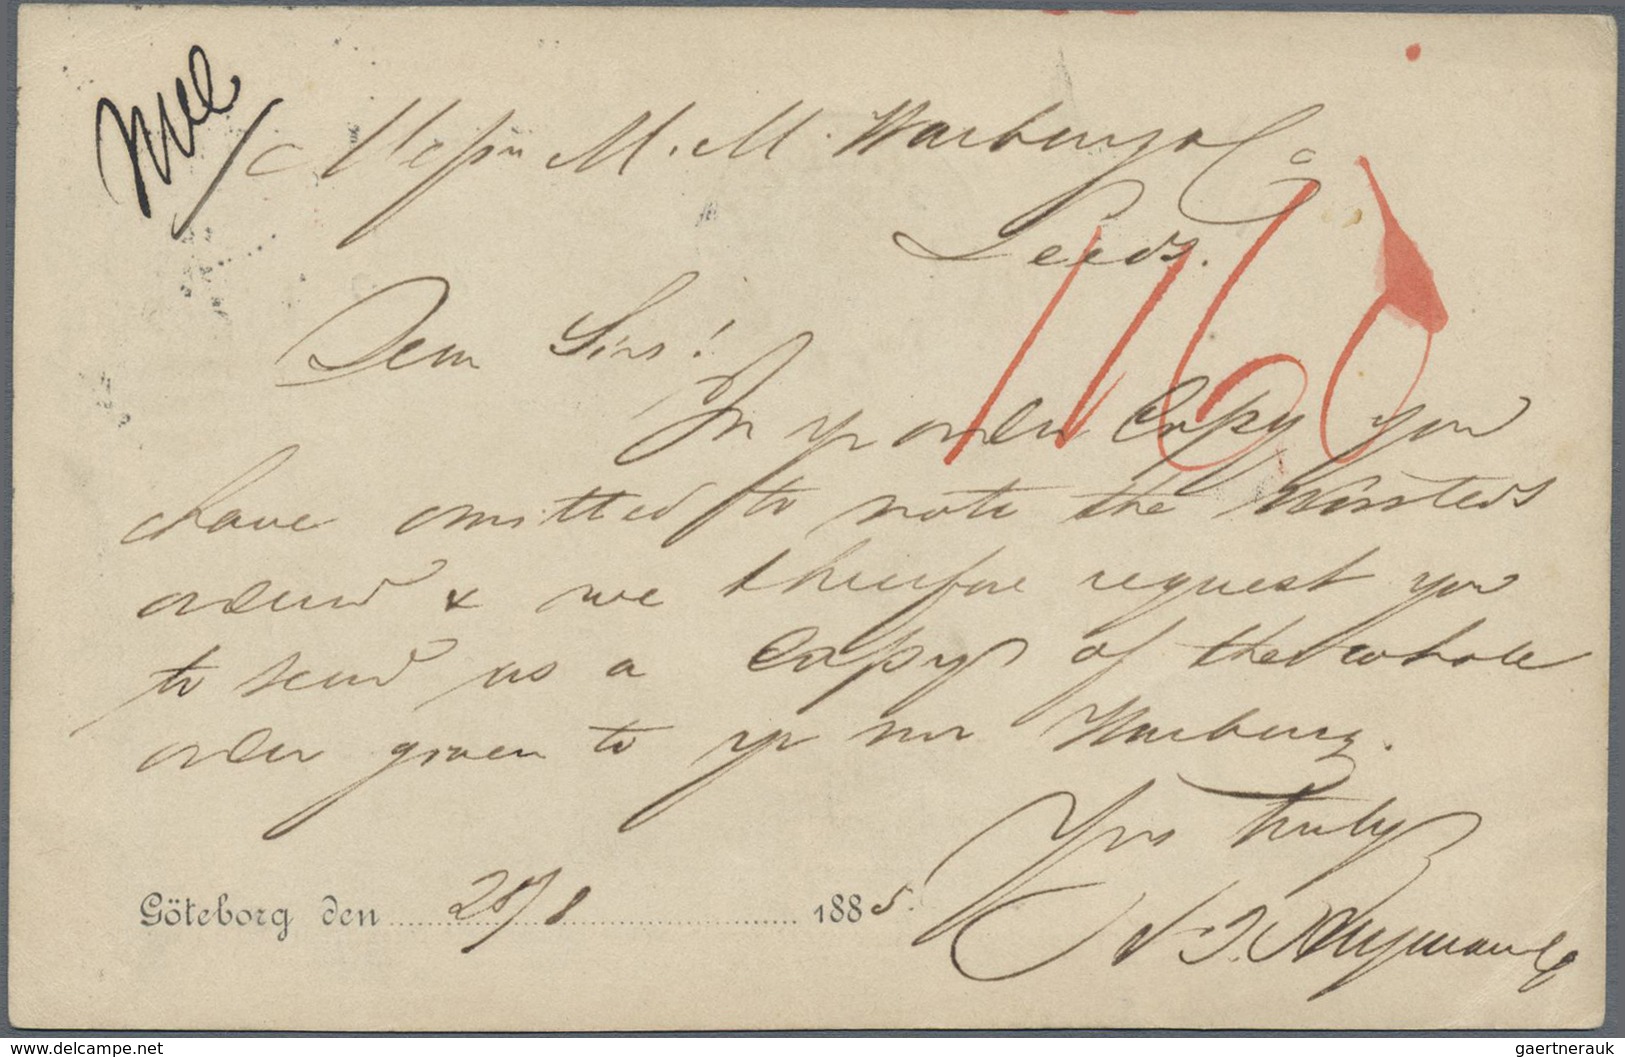 Messrs M. M. Warburg & Co
Leeds.
1160
Dear Sirs!
In yr order Copy you
have omitted to note the Worsteds
ordered & we therefore request you
to send us a Copy of the whole
order given to yr mr Warburg.
Yrs truly
Göteborg den 28/8 1885.
www.delcampe.net
gaertnerauk